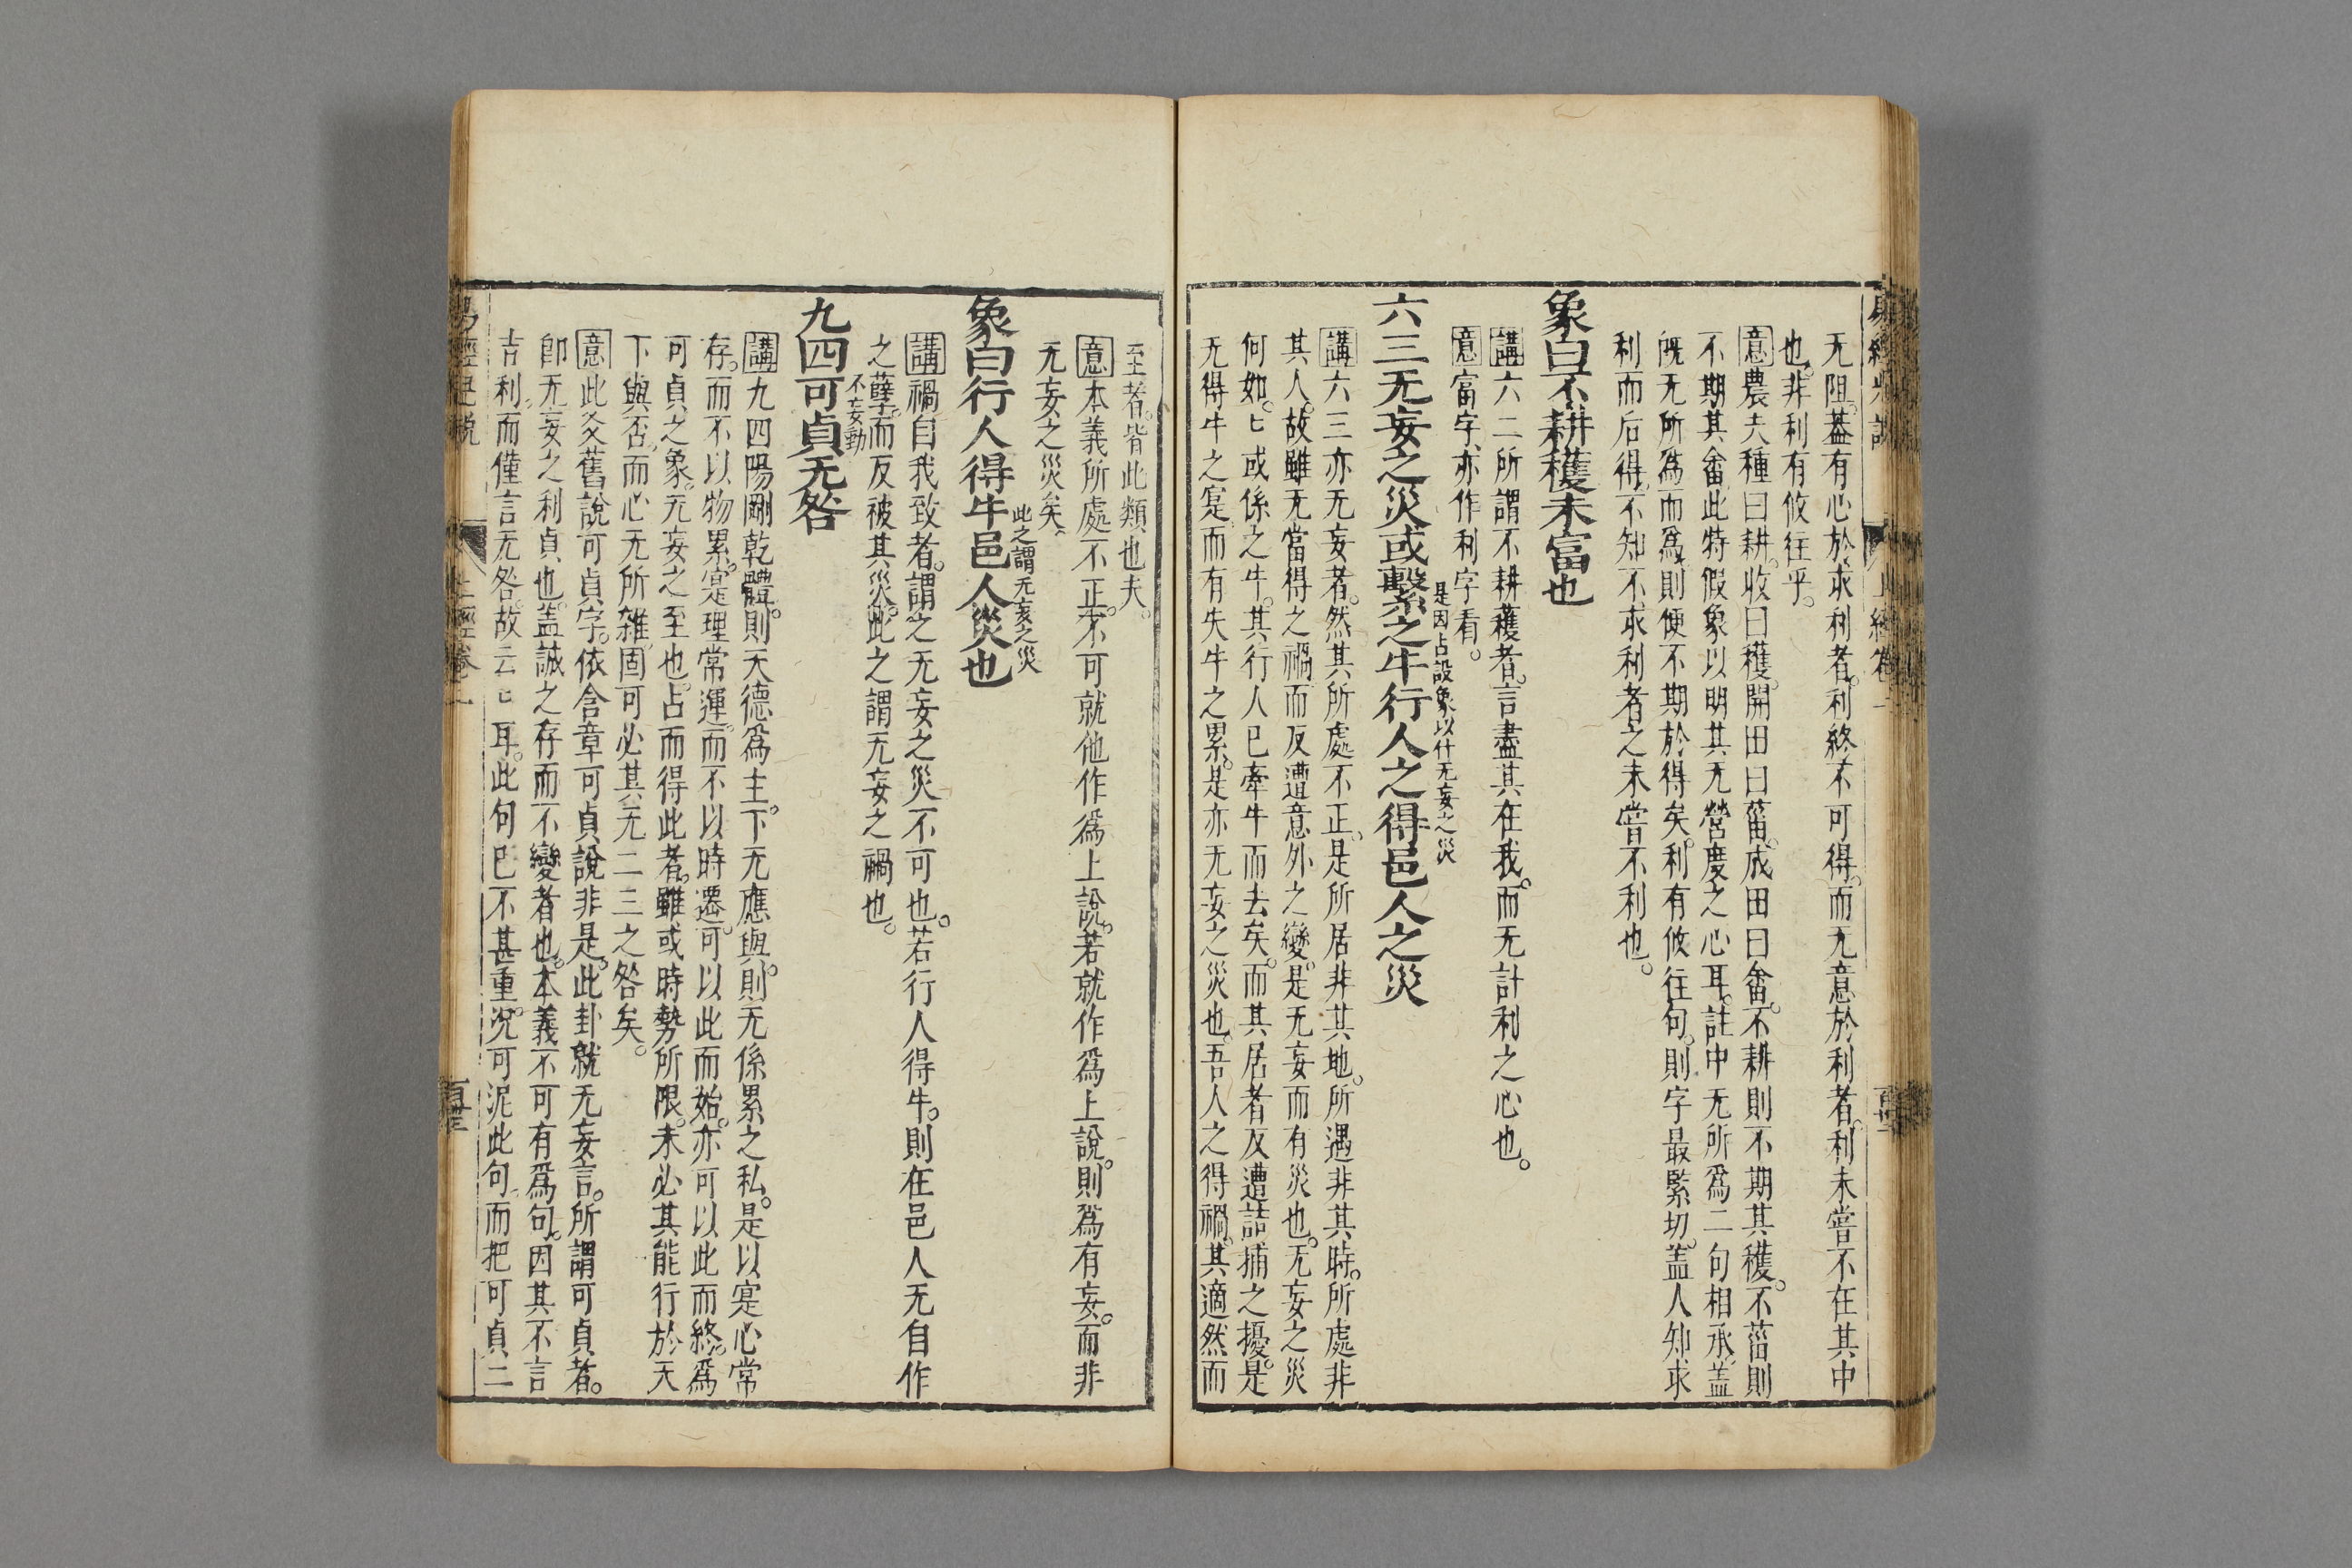 无阻蓋有心於求利者利終不可得而无意於利者利未嘗不在其中
也非利有攸往乎
意農夫種曰耕收曰穫開田曰菑成田曰畬不耕則不期其穫不菑則
不期其畬此特假象以明其无營慶之心耳註中无所爲二句相承盖
旣无所爲而爲則便不期於得矣利有攸往句則字最緊切盖人知求
利而后得不知不求利者之未嘗不利也
象曰不耕穫未富也
講六二所謂不耕穫者言盡其在我而无計利之心也
意富字亦作利字看
是因占設象以什无妄之災
六三无妄之災或繫之牛行人之得邑人之災
講六三亦无妄者然其所處不正是所居非其地所遇非其時所處非
其人故雖无當得之禍而反遭意外之變是无妄而有災也无妄之災
何如ヒ或係之牛其行人已牽牛而去矣而其居者反遭詰捕之擾是
无得牛之寔而有失牛之累是亦无妄之災也吾人之得禍其適然而
至者皆此類也夫
意本義所處不正不可就他作爲上說若就作爲上說則爲有妄而非
无妄之災矣
此之謂无妄之災
象曰行人得牛邑人災也
講禍自我致者謂之无妄之災不可也若行人得牛則在邑人无自作
之孽而反被其災此之謂无妄之禍也
不妄動
九四可貞无咎
講九四陽剛乾體則天德爲主下无應與則无係累之私是以寔心常
存而不以物累寔理常運而不以時遷可以此而始亦可以此而終爲
可貞之象无妄之至也占而得此者雖或時勢所限未必其能行於天
下與否而心无所雜固可必其无二三之咎矣
意此爻舊說可貞字依含章可貞說非是此卦就无妄言所謂可貞者
卽无妄之利貞也盖誠之存而不變者也本義不可有爲句因其不言
吉利而僅言无咎故云ヒ耳此句已不甚重況可泥此句而把可貞二
上經卷二